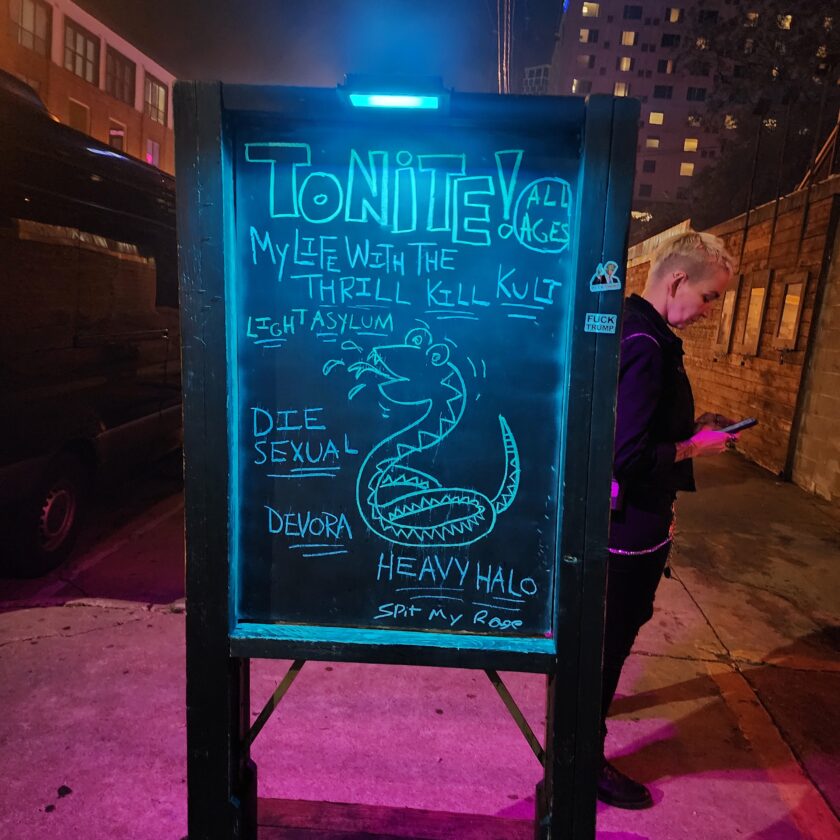 TONiTE!
ALL
AGES
MY LIFE WITH THE
THRILL KILL KULT
LIGHT ASYLUM
DIE
SEXUAL
DEVORA
HEAVY HALO
Spit My Rage
FUCK
TRUMP!